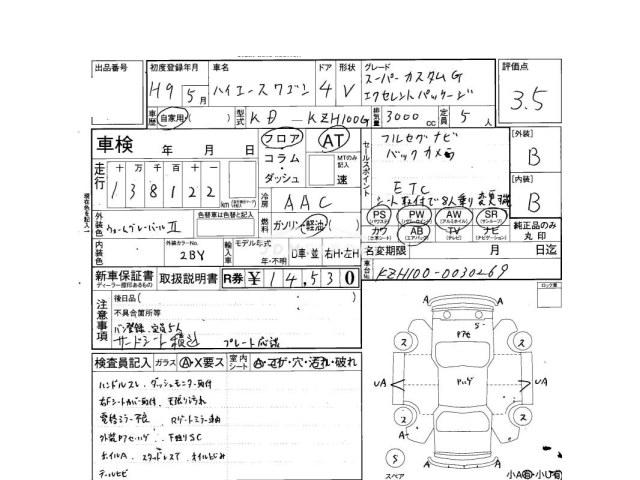 出品番号 初度登録年月 車名 ドア 形状 グレード 評価点
H9 5月 ハイエースワゴン 4 V スーパーカスタムG
エクセレントパッケージ
3.5
車歴 自家用・( ) 型式 KD - KZH100G 排気量 3000cc 定員 5人
車検 年 月 日
フロア AT
コラム・ダッシュ MTのみ記入 速
セールスポイント
フルセグナビ
バックカメラ
ETC
シート取付で8人乗り変更可
[外装] B
[内装] B
走行 十 万 千 百 十 一
138122 km
冷房 AAC
外装色 ウォームグレーパールII 色替車は色替と記入 燃料 ガソリン・軽油・( )
PS PW AW SR 純正品のみ丸印
カワ AB TV ナビ
内装色 外装カラーNo. 2BY 輸入車 モデル年式 年・不明 D車・並 右H・左H
名変期限 月 日迄
新車保証書 取扱説明書 R券 ¥14,530
ディーラー捺印あるもの
車台No. KZH100-0030269
注意事項 後日品( )
不具合箇所等
バン登録 定員5人
サードシート積込 プレート応談
検査員記入 ガラス A・X要ス 室内シート A・コゲ・穴・汚れ・破れ
ハンドルスレ ダッシュモニター取付
右Fシートカバー取付 天張り汚れ
電格ミラー不良
外装 下廻りSC
ホイルA スタッドレスT オイルにじみ
テールヒビ
ロック装
A A
S
2 2
UA UA
2 2
A A
A A
S
スペア
小A有・小U有